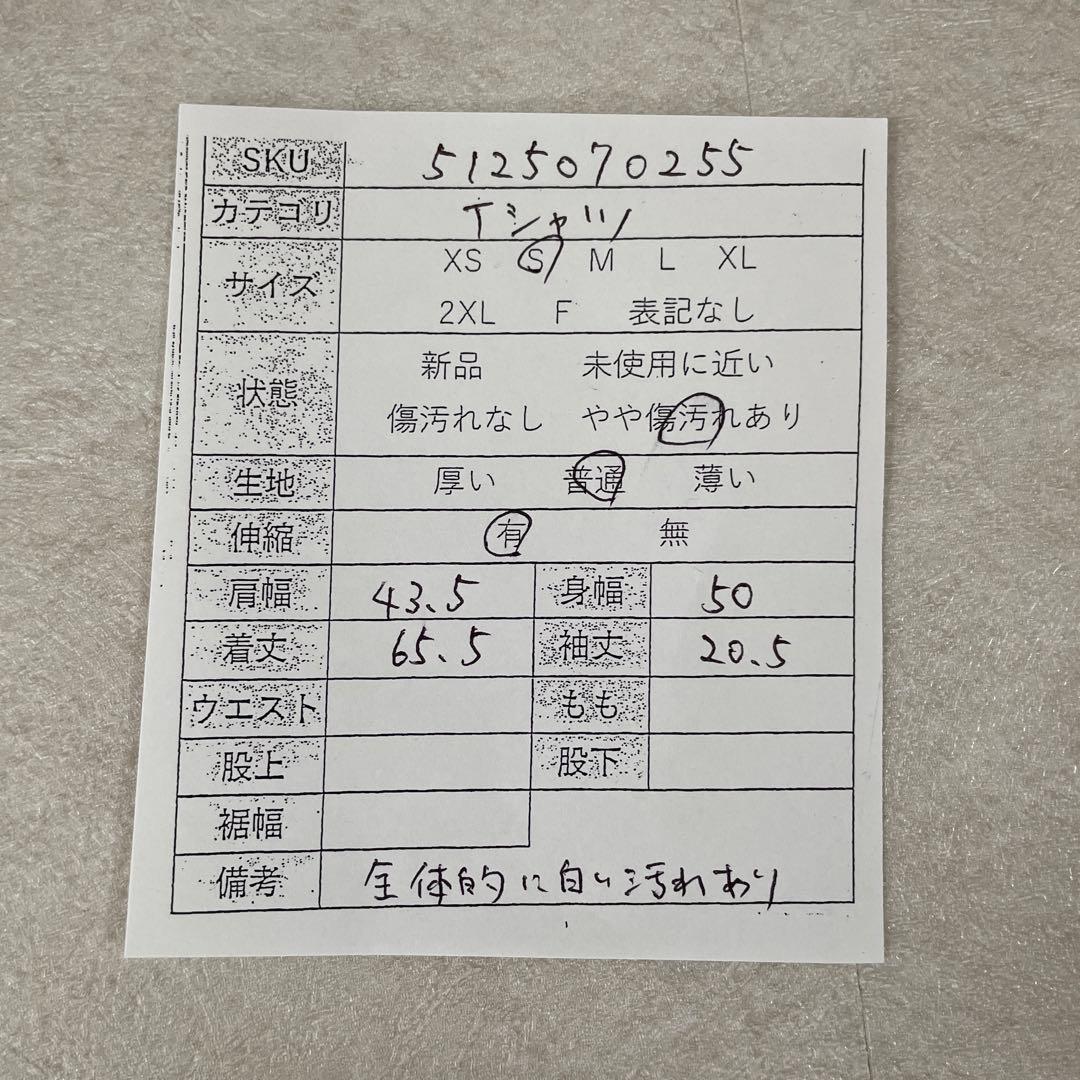 SKU 5125070255
カテゴリ Tシャツ
サイズ XS S M L XL
2XL F 表記なし
状態 新品 未使用に近い
傷汚れなし やや傷汚れあり
生地 厚い 普通 薄い
伸縮 有 無
肩幅 43.5 身幅 50
着丈 65.5 袖丈 20.5
ウエスト もも
股上 股下
裾幅
備考 全体的に白い汚れあり